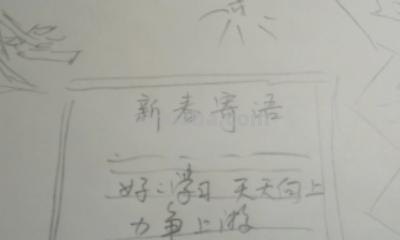 新春寄语
好:学习 天天向上
力争上游